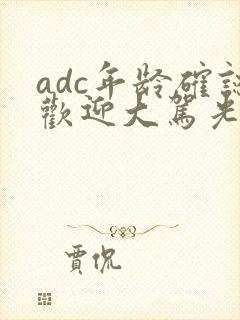 adc年龄確認
歡迎大駕光
賈侃